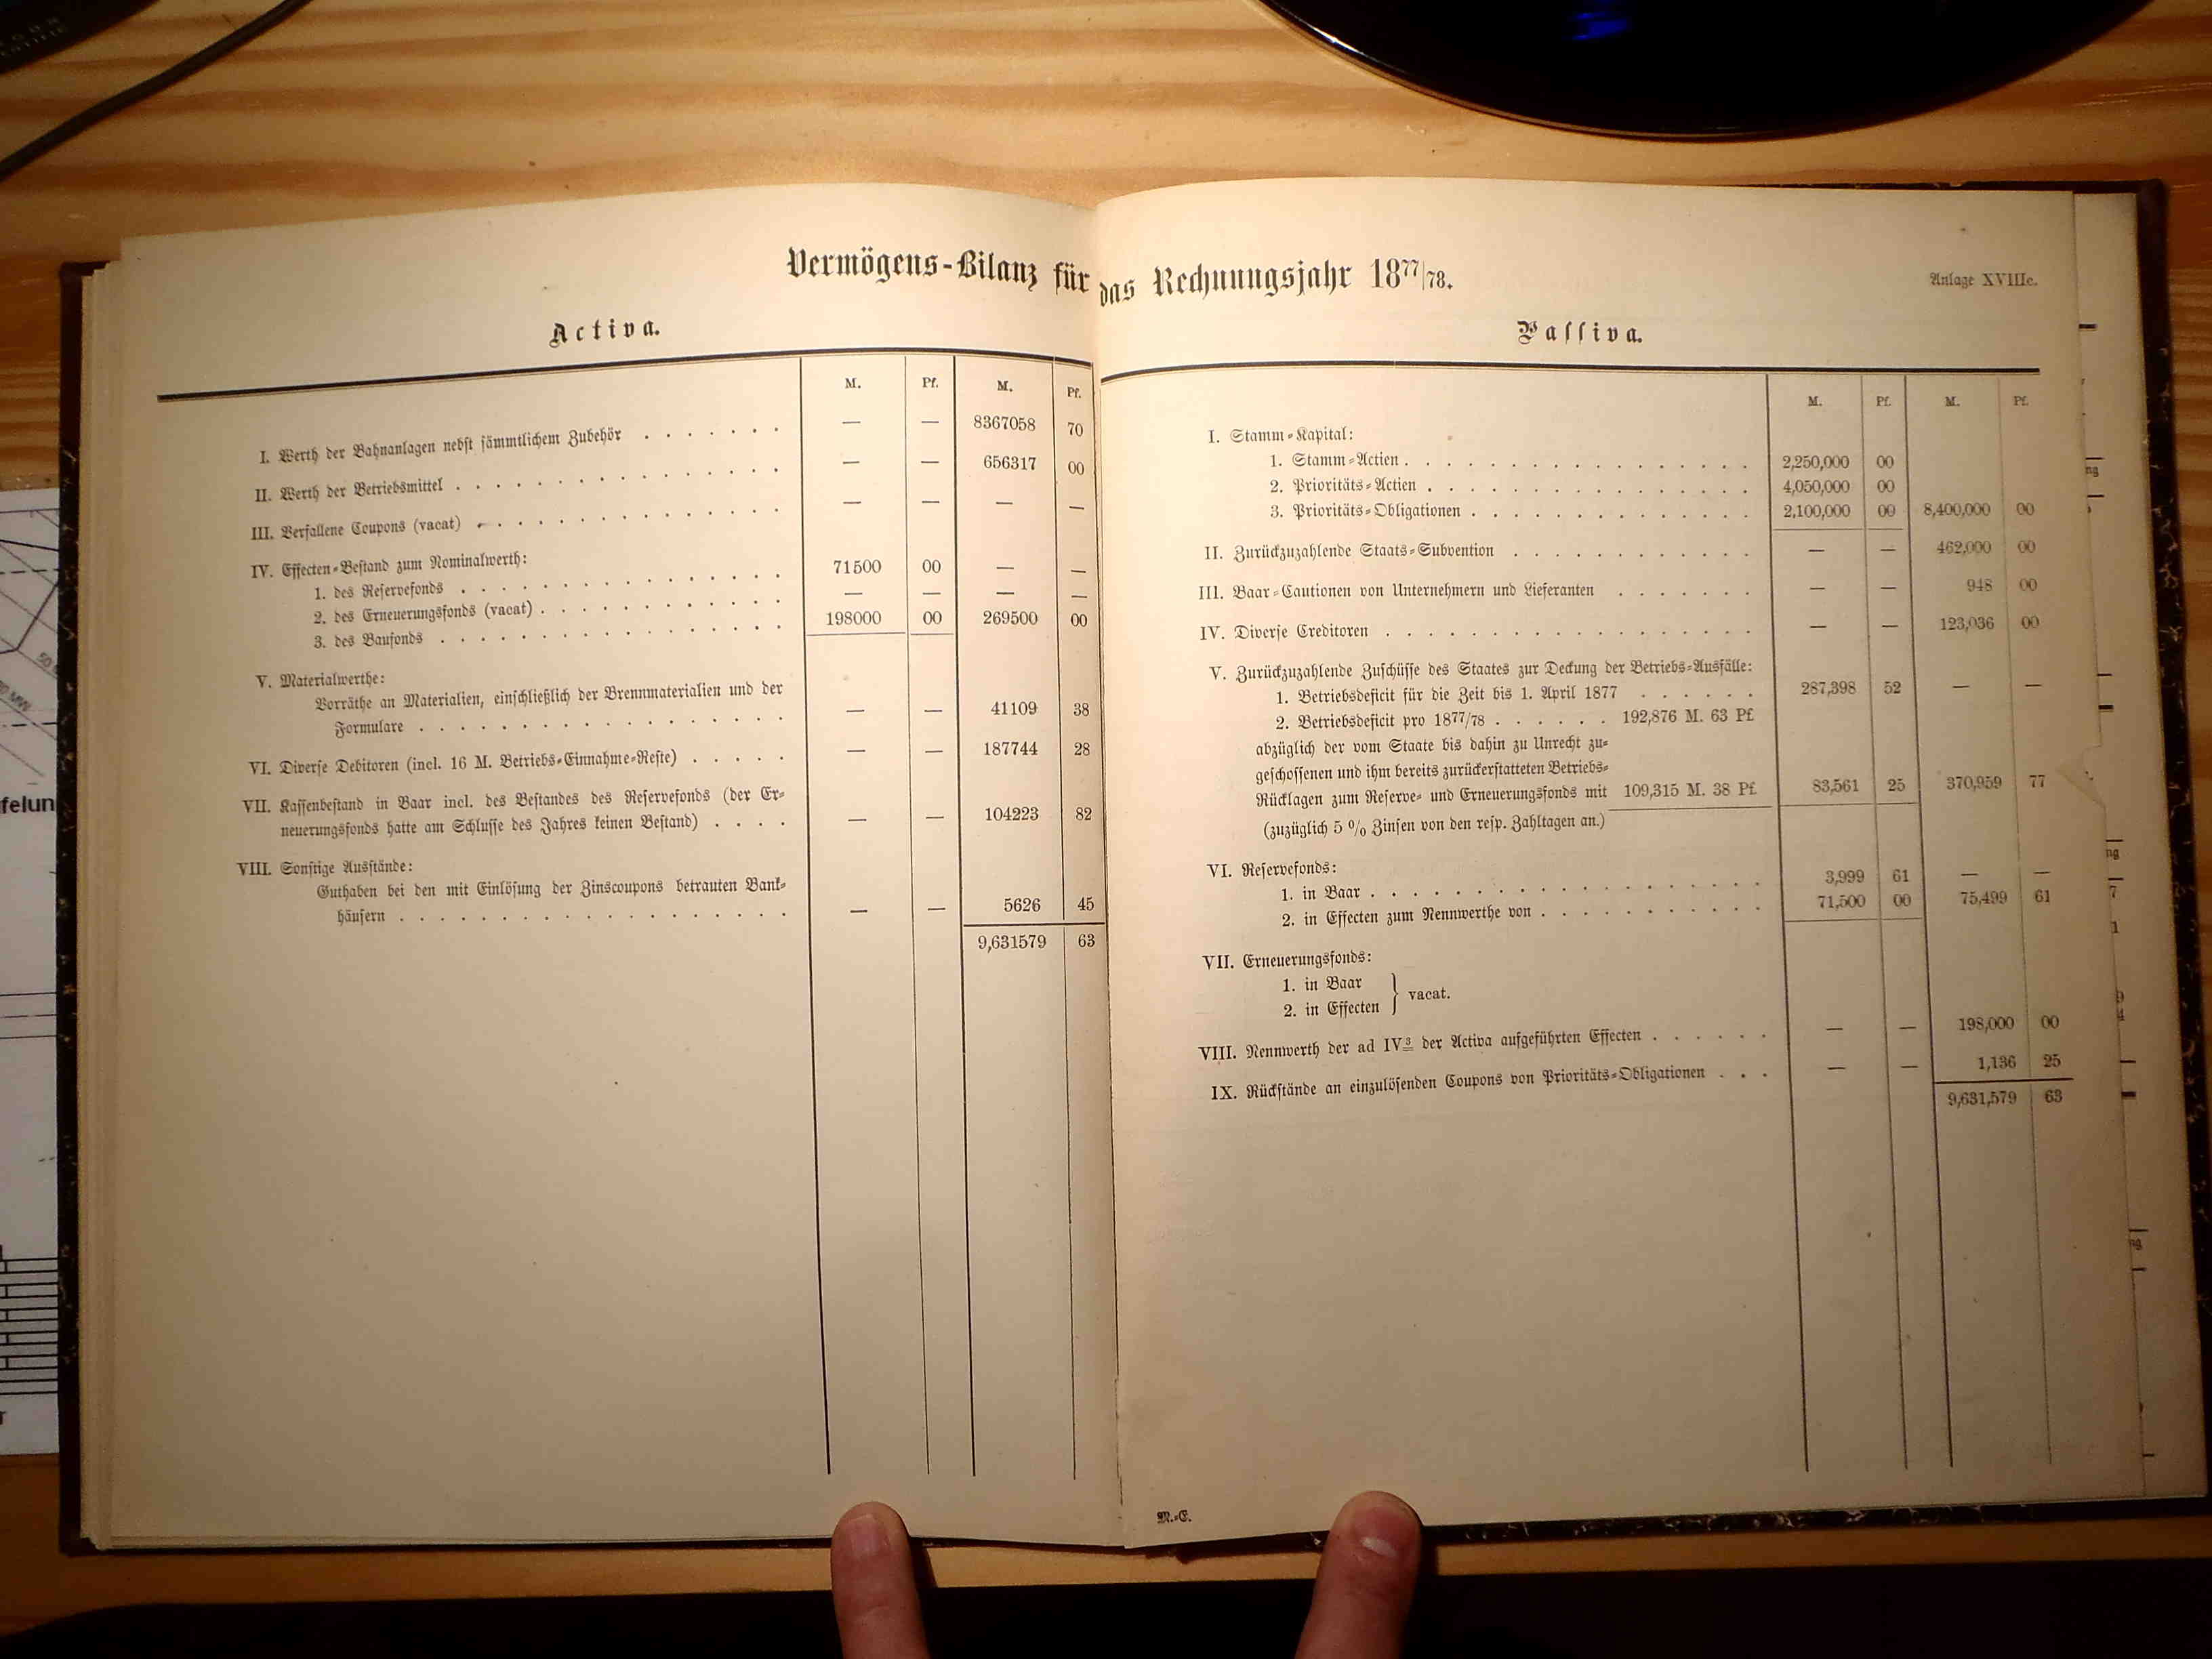 Vermögens-Bilanz für das Rechnungsjahr 18⁷⁷/₇₈.
Anlage XVIIIc.
Activa.
M. Pf. M. Pf.
I. Werth der Bahnanlagen nebst sämmtlichem Zubehör . . . . . . . — — 8367058 70
II. Werth der Betriebsmittel . . . . . . . . . . . . . — — 656317 00
III. Verfallene Coupons (vacat) . . . . . . . . . . . . . — — — —
IV. Effecten-Bestand zum Nominalwerth:
1. des Reservefonds . . . . . . . . . . . . . 71500 00 — —
2. des Erneuerungsfonds (vacat) . . . . . . . . . . . — — — —
3. des Baufonds . . . . . . . . . . . . . . 198000 00 269500 00
V. Materialwerthe:
Vorräthe an Materialien, einschließlich der Brennmaterialien und der
Formulare . . . . . . . . . . . . . . . — — 41109 38
VI. Diverse Debitoren (incl. 16 M. Betriebs-Einnahme-Reste) . . . . . — — 187744 28
VII. Kassenbestand in Baar incl. des Bestandes des Reservefonds (der Er-
neuerungsfonds hatte am Schlusse des Jahres keinen Bestand) . . . . — — 104223 82
VIII. Sonstige Ausstände:
Guthaben bei den mit Einlösung der Zinscoupons betrauten Bank-
häusern . . . . . . . . . . . . . . . . — — 5626 45
9,631579 63
Passiva.
M. Pf. M. Pf.
I. Stamm-Kapital:
1. Stamm-Actien . . . . . . . . . . . . . . . 2,250,000 00
2. Prioritäts-Actien . . . . . . . . . . . . . . 4,050,000 00
3. Prioritäts-Obligationen . . . . . . . . . . . . . 2,100,000 00 8,400,000 00
II. Zurückzuzahlende Staats-Subvention . . . . . . . . . . . — — 462,000 00
III. Baar-Cautionen von Unternehmern und Lieferanten . . . . . . . — — 948 00
IV. Diverse Creditoren . . . . . . . . . . . . . . . . — — 123,036 00
V. Zurückzuzahlende Zuschüsse des Staates zur Deckung der Betriebs-Ausfälle:
1. Betriebsdeficit für die Zeit bis 1. April 1877 . . . . . . 287,398 52 — —
2. Betriebsdeficit pro 18⁷⁷/78 . . . . . . 192,876 M. 63 Pf.
abzüglich der vom Staate bis dahin zu Unrecht zu-
geschossenen und ihm bereits zurückerstatteten Betriebs-
Rücklagen zum Reserve- und Erneuerungsfonds mit 109,315 M. 38 Pf. 83,561 25 370,959 77
(zuzüglich 5 % Zinsen von den resp. Zahltagen an.)
VI. Reservefonds:
1. in Baar . . . . . . . . . . . . . . . . 3,999 61 — —
2. in Effecten zum Nennwerthe von . . . . . . . . . . 71,500 00 75,499 61
VII. Erneuerungsfonds:
1. in Baar
2. in Effecten } vacat.
VIII. Nennwerth der ad IV³ der Activa aufgeführten Effecten . . . . . . — — 198,000 00
IX. Rückstände an einzulösenden Coupons von Prioritäts-Obligationen . . . — — 1,136 25
9,631,579 63
M.-E.
felun